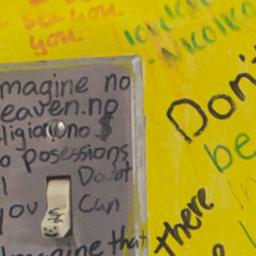 see you.
you.
magine no
eaven.no
ligion no $
o posessions
I Doubt
you can
Imagine that
Don't
be
there